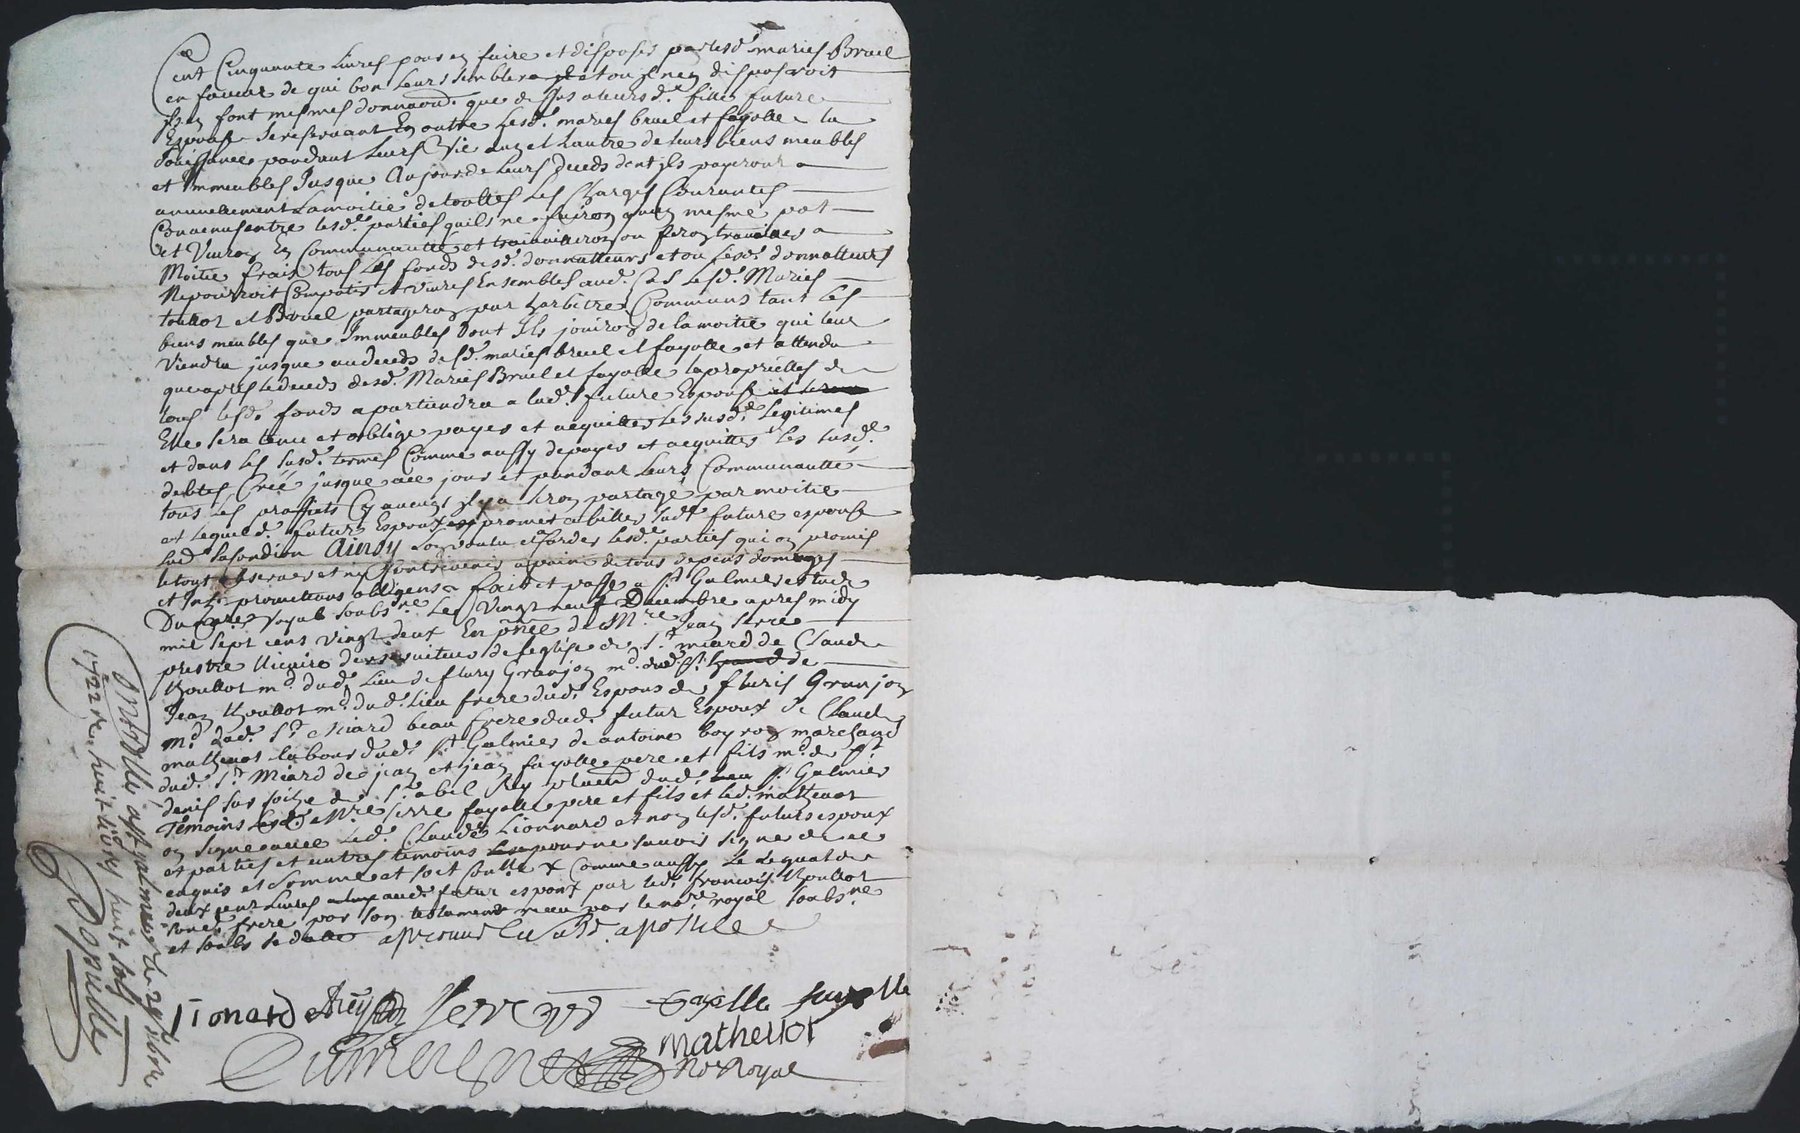 Cent Cinquante Livres pour en faire et disposer par lesd. maries Bruel
en faveur de qui bon Leurs semblera et ou ils nen disposeroit
Ils en font mesmes donnaon. que dessus a leursd. fille future
Espouse se reservant En outre Lesd. maries bruel et fayolle la
Jouissance pandant Leurs Vie dun et Lautre de leurs biens meubles
et Immeubles Jusque Au jour de Leurs Deceds dont ils payeront
annuellement Lamoitie de touttes Les Charges Courantes
Convenus entre lesd. parties quils ne fairon quun mesme pot
et Vivron En Communautté et travailleron ou feron travailler a
Moitie frais tous Les fonds desd. donnatteurs et ou lesd. donnatteurs
Nepourroit Compatir et vivres Ensembles aud. Cas Lesd. Maries
toullot et Bruel partageron par arbitres Communs tant les
biens meubles que Immeubles Dont Ils jouiron de la moitie qui leur
Viendra jusque au deceds desd. maries bruel et fayolle et attendu
que apres le deceds desd. Maries Bruel et fayolle la proprietté de
tous lesd. fonds apartiendra a lad. future Espouse
Elle sera tenue et obligé payer et acquitter les susd. Legitimes
et dans les susd. termes Comme aussy de payer et acquitter les susd.
debtes Creé jusque a ce jour et pendant leurs Communautté
tous les proffits sy aucuns il y a seron partagé par moitie
et lequel d. futur Espoux promet abiller lad. future espouse
Lad. sa Condion Ainsy con voulu et acordes lesd. parties qui on promis
le tout observer et ny Contrevenir a peine de tous depens domages
et Int. promettans obligeans fait et passé a St. Galmier estude
Du No.re royal soubs.ne Le Vingt neuf Decembre apres midy
mil sept cens vingt deux En pnce de M.re Jean Serre
prestre Vicaire desserviteur de leglise de St. miard de Claude
thoullot md. dud. Lieu de flury Granjon md. dud. St. de
Jean thoullot md. dud. Lieu frere dud. Espoux de fluris Granjon
Md. dud. St. Miard beau frere dud. futur Espoux de Claude
mathevot labour dud. St. Galmier de antoine boyron marchand
dud. St. Miard de jean et jean fayolle pere et fils md. de St.
denis sur Coize de St. abel Rey dud. St. Galmier
Temoins lesd. Mre serre fayolle pere et fils et led. mathevot
on signe avec led. Claude Lionnard et non lesd. futurs espoux
et parties et autres temoins pour ne savoir signe de ce
enquis et sommé et soit Comme aussy Le Legual de
deux cent Livres aud. futur espoux par led. francois thoullot
son frere par son testament receu par le nore. royal soubs.ne
et soubs sa datte aprouvé la apostille
Lionard Rey Serre ptre fayolle fayolle
Mathevot
No.e Royal
Controllé a St. galmier le 29 Xbre
1722 Re. huit livres huit sols